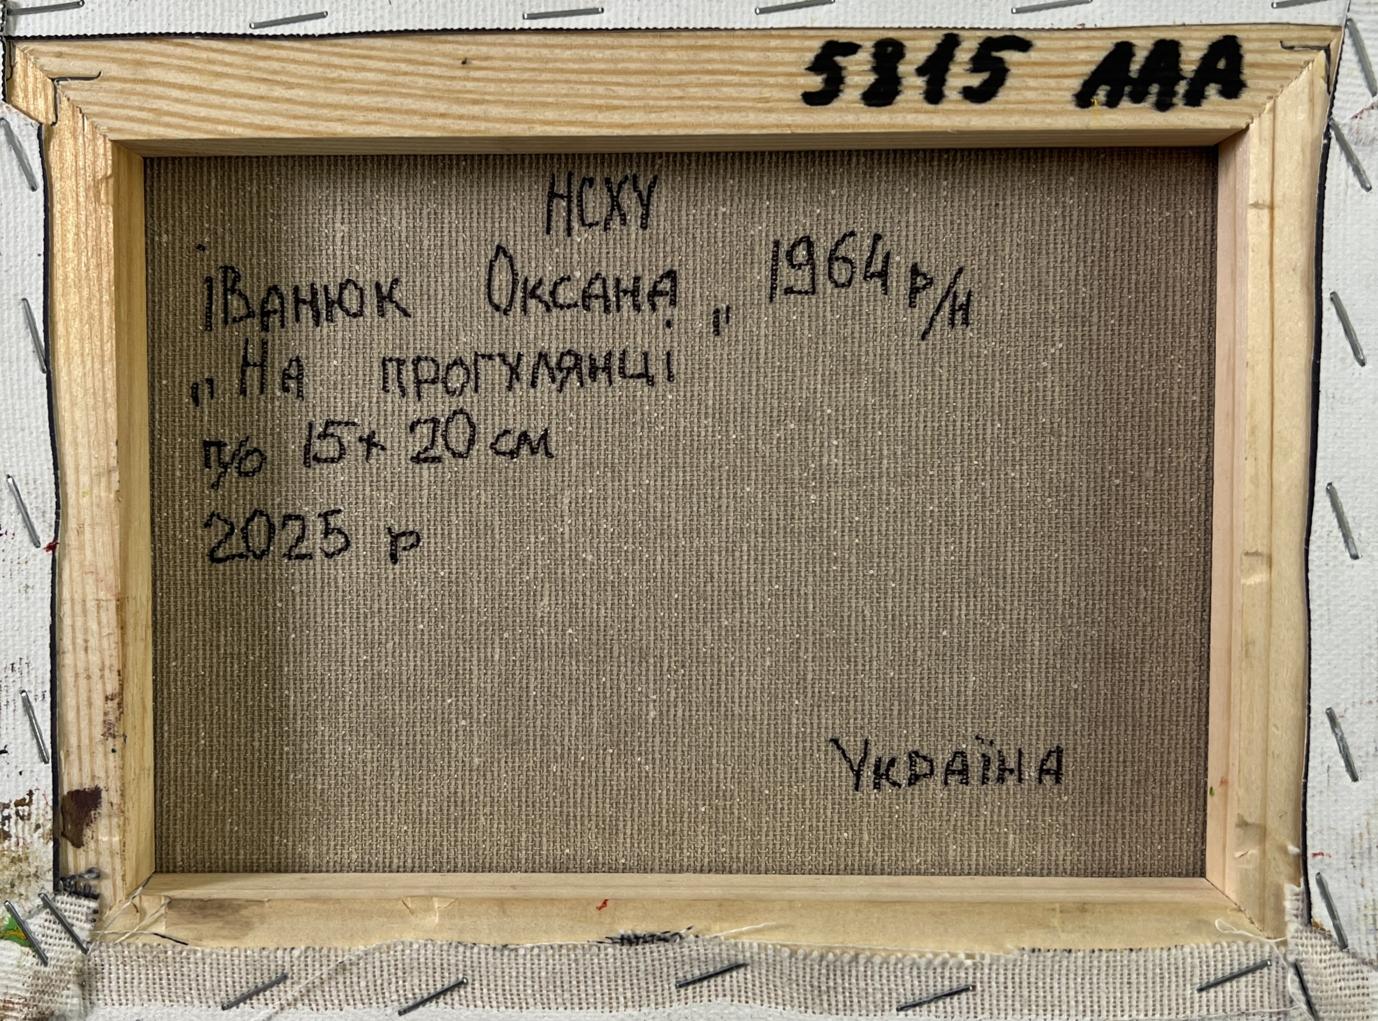 5815 AAA
НСХУ
іВанюк Оксана 1964 р/н
„На прогулянці"
п/о 15х 20 см
2025 р
Україна